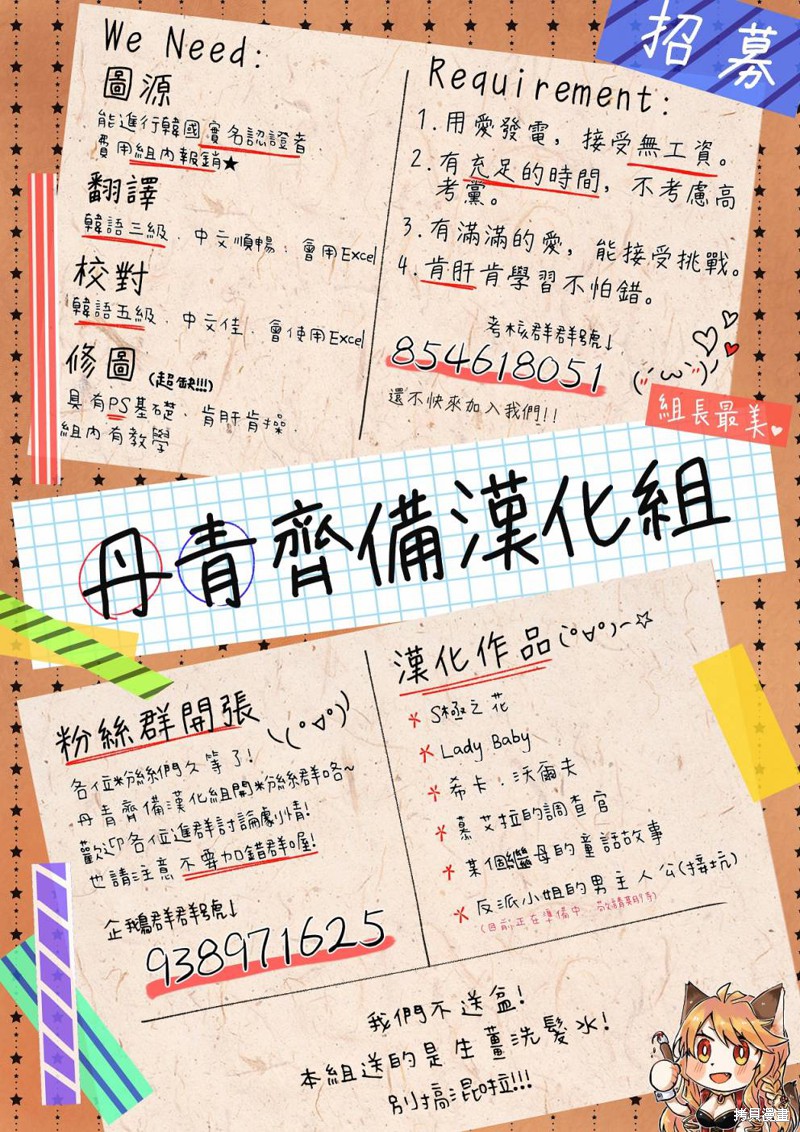 招募
We Need:
圖源
能進行韓國實名認證者
費用組內報銷★
翻譯
韓語三級、中文順暢、會用Excel
校對
韓語五級、中文佳、會使用Excel
修圖(超缺!!!)
具有PS基礎、肯肝肯操、
組內有教學
Requirement:
1.用愛發電，接受無工資。
2.有充足的時間，不考慮高
考黨。
3.有滿滿的愛，能接受挑戰。
4.肯肝肯學習不怕錯。
考核群群號↓
854618051
還不快來加入我們!!
組長最美♥
丹青齊備漢化組
粉絲群開張\\(°▽°)/
各位粉絲們久等了!
丹青齊備漢化組開粉絲群咯~
歡迎各位進群討論劇情!
也請注意不要加錯群喔!
企鵝群群號↓
938971625
漢化作品(°∀°)~☆
S極之花
Lady Baby
希卡·沃爾夫
慕艾拉的調查官
某個繼母的童話故事
反派小姐的男主人公(接坑)
(目前正在準備中，敬請期待)
我們不送盒!
本組送的是生薑洗髮水!
別搞混啦!!!
拷貝漫畫